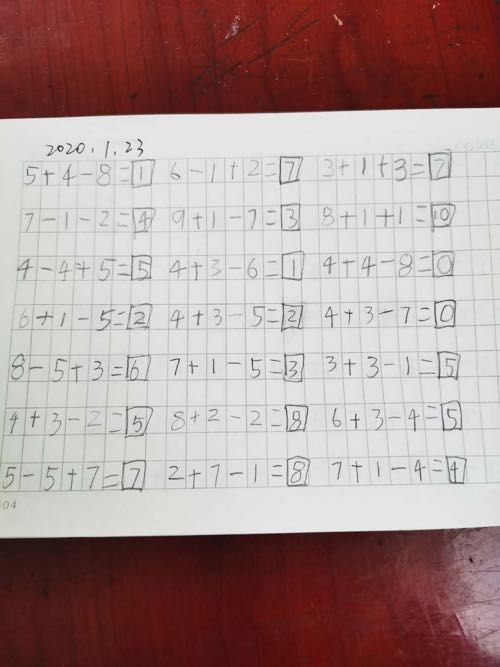 2020.1.23
5+4-8=1 6-1+2=7 3+1+3=7
7-1-2=4 9+1-7=3 8+1+1=10
4-4+5=5 4+3-6=1 4+4-8=0
6+1-5=2 4+3-5=2 4+3-7=0
8-5+3=6 7+1-5=3 3+3-1=5
4+3-2=5 8+2-2=8 6+3-4=5
5-5+7=7 2+7-1=8 7+1-4=4
04